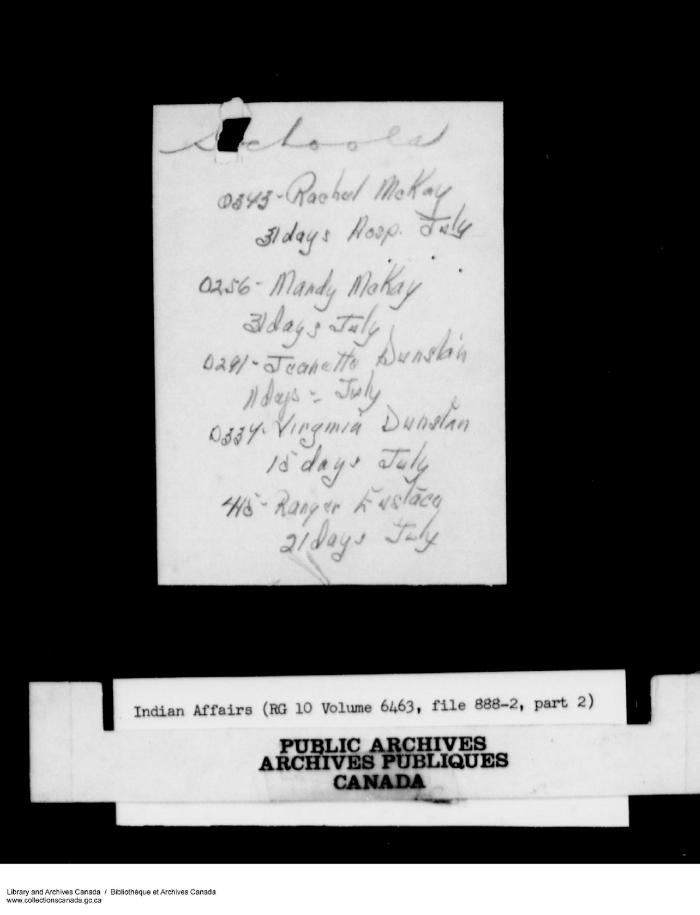 Schools
0343- Rachel McKay
31 days Hosp. July
0256- Mandy McKay
31 days July
0291- Jeanette Dunstan
11 days = July
0334- Virginia Dunstan
15 days July
415- Ranger Eustace
21 days July
Indian Affairs (RG 10 Volume 6463, file 888-2, part 2)
PUBLIC ARCHIVES
ARCHIVES PUBLIQUES
CANADA
Library and Archives Canada / Bibliothèque et Archives Canada
www.collectionscanada.gc.ca